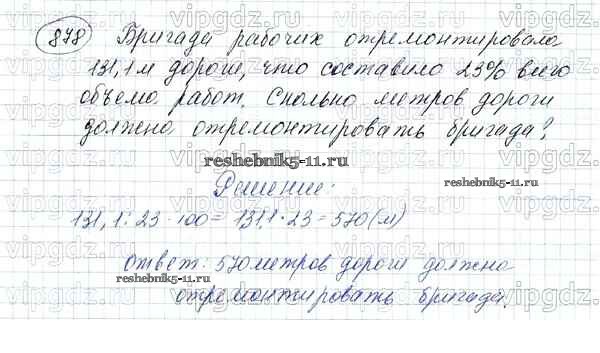 878 Бригада рабочих отремонтировала
131,1 м дороги, что составило 23% всего
объёма работ. Сколько метров дороги
должна отремонтировать бригада?
reshebnik5-11.ru
Решение:
reshebnik5-11.ru
131,1 : 23 · 100 = 1311 : 23 = 570 (м)
Ответ: 570 метров дороги должна
reshebnik5-11.ru
отремонтировать бригада.